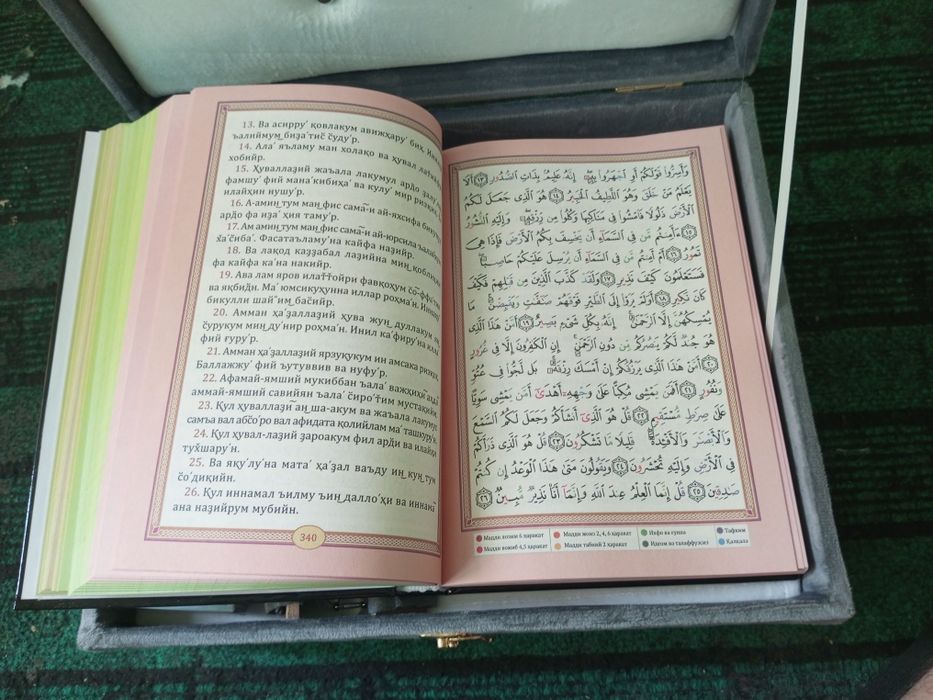 13. Ва асирру' қовлакум авижҳару' биҳ, Инна
ъалиймум биза'тис̆ с̆уду'р.
14. Ала' яъламу ман холақо ва ҳувал
хобийр.
15. Ҳуваллазий жаъала лакумул ардо
фамшу' фий мана'кибиҳа' ва кулу' мир ризқиҳ,
илайҳин нушу'р.
16. А-амин,тум ман фис сама̄-и ай-яхсифа
ардо фа иза' ҳия таму'р.
17. Ам амин,тум ман фис сама̄-и ай-юрсила
х̆а'с̆иба'. Фасатаъламу'на кайфа назийр.
18. Ва лақод каззабал лазийна мин,
фа кайфа ка'на накийр.
19. Ава лам яров илат̆т̆ойри фавқоҳум
ва яқбидн. Ма' юмсикуҳунна иллар роҳма'н. Иннаҳу'
бикулли шай̆им басийр.
20. Амман ҳа'заллазий ҳува жун,дуллакум
с̆урукум мин ду'нир роҳма'н. Инил ка'фиру'на илла'
фий ғуру'р.
21. Амман ҳа'заллазий ярзуқукум ин амсака
Баллажжу' фий ъутуввив ва нуфу'р.
22. Афамай-ямший мукиббан ъала' важҳиҳий
аммай-ямший савийян ъала' с̆иро'т̆им мустақийм.
23. Қул ҳуваллазий ан,ша-акум ва жаъала лакумус
самъа вал абс̆о'ро вал афидата қолийлам ма' ташкуру'н.
24. Қул ҳувал-лазий зароакум фил арди ва илайҳи
тух̆шару'н.
25. Ва яқу'лу'на мата' ҳа'зал ваъду ин кун,тум
с̆о'диқийн.
26. Қул иннамал ъилму ъин,далло'ҳи ва иннама̄
ана назийрум мубийн.
340
وَأَسِرُّوا۟ قَوْلَكُمْ أَوِ ٱجْهَرُوا۟ بِهِۦٓ ۖ إِنَّهُۥ عَلِيمٌۢ بِذَاتِ ٱلصُّدُورِ ﴿١٣﴾ أَلَا
يَعْلَمُ مَنْ خَلَقَ وَهُوَ ٱللَّطِيفُ ٱلْخَبِيرُ ﴿١٤﴾ هُوَ ٱلَّذِى جَعَلَ لَكُمُ
ٱلْأَرْضَ ذَلُولًا فَٱمْشُوا۟ فِى مَنَاكِبِهَا وَكُلُوا۟ مِن رِّزْقِهِۦ ۖ وَإِلَيْهِ ٱلنُّشُورُ
﴿١٥﴾ ءَأَمِنتُم مَّن فِى ٱلسَّمَآءِ أَن يَخْسِفَ بِكُمُ ٱلْأَرْضَ فَإِذَا هِىَ
تَمُورُ ﴿١٦﴾ أَمْ أَمِنتُم مَّن فِى ٱلسَّمَآءِ أَن يُرْسِلَ عَلَيْكُمْ حَاصِبًا ۖ
فَسَتَعْلَمُونَ كَيْفَ نَذِيرِ ﴿١٧﴾ وَلَقَدْ كَذَّبَ ٱلَّذِينَ مِن قَبْلِهِمْ فَكَيْفَ
كَانَ نَكِيرِ ﴿١٨﴾ أَوَلَمْ يَرَوْا۟ إِلَى ٱلطَّيْرِ فَوْقَهُمْ صَـٰٓفَّـٰتٍ وَيَقْبِضْنَ ۚ مَا
يُمْسِكُهُنَّ إِلَّا ٱلرَّحْمَـٰنُ ۚ إِنَّهُۥ بِكُلِّ شَىْءٍۭ بَصِيرٌ ﴿١٩﴾ أَمَّنْ هَـٰذَا ٱلَّذِى
هُوَ جُندٌ لَّكُمْ يَنصُرُكُم مِّن دُونِ ٱلرَّحْمَـٰنِ ۚ إِنِ ٱلْكَـٰفِرُونَ إِلَّا فِى غُرُورٍ
﴿٢٠﴾ أَمَّنْ هَـٰذَا ٱلَّذِى يَرْزُقُكُمْ إِنْ أَمْسَكَ رِزْقَهُۥ ۚ بَل لَّجُّوا۟ فِى عُتُوٍّ
وَنُفُورٍ ﴿٢١﴾ أَفَمَن يَمْشِى مُكِبًّا عَلَىٰ وَجْهِهِۦٓ أَهْدَىٰٓ أَمَّن يَمْشِى سَوِيًّا
عَلَىٰ صِرَٰطٍ مُّسْتَقِيمٍ ﴿٢٢﴾ قُلْ هُوَ ٱلَّذِىٓ أَنشَأَكُمْ وَجَعَلَ لَكُمُ ٱلسَّمْعَ
وَٱلْأَبْصَـٰرَ وَٱلْأَفْـِٔدَةَ ۖ قَلِيلًا مَّا تَشْكُرُونَ ﴿٢٣﴾ قُلْ هُوَ ٱلَّذِى ذَرَأَكُمْ
فِى ٱلْأَرْضِ وَإِلَيْهِ تُحْشَرُونَ ﴿٢٤﴾ وَيَقُولُونَ مَتَىٰ هَـٰذَا ٱلْوَعْدُ إِن كُنتُمْ
صَـٰدِقِينَ ﴿٢٥﴾ قُلْ إِنَّمَا ٱلْعِلْمُ عِندَ ٱللَّهِ وَإِنَّمَآ أَنَا۠ نَذِيرٌ مُّبِينٌ ﴿٢٦﴾
Мадди лозим 6 ҳаракат Мадди жоиз 2, 4, 6 ҳаракат Ихфо ва ғунна Тафхим
Мадди вожиб 4,5 ҳаракат Мадди табиий 2 ҳаракат Идғом ва талаффузсиз Қалқала